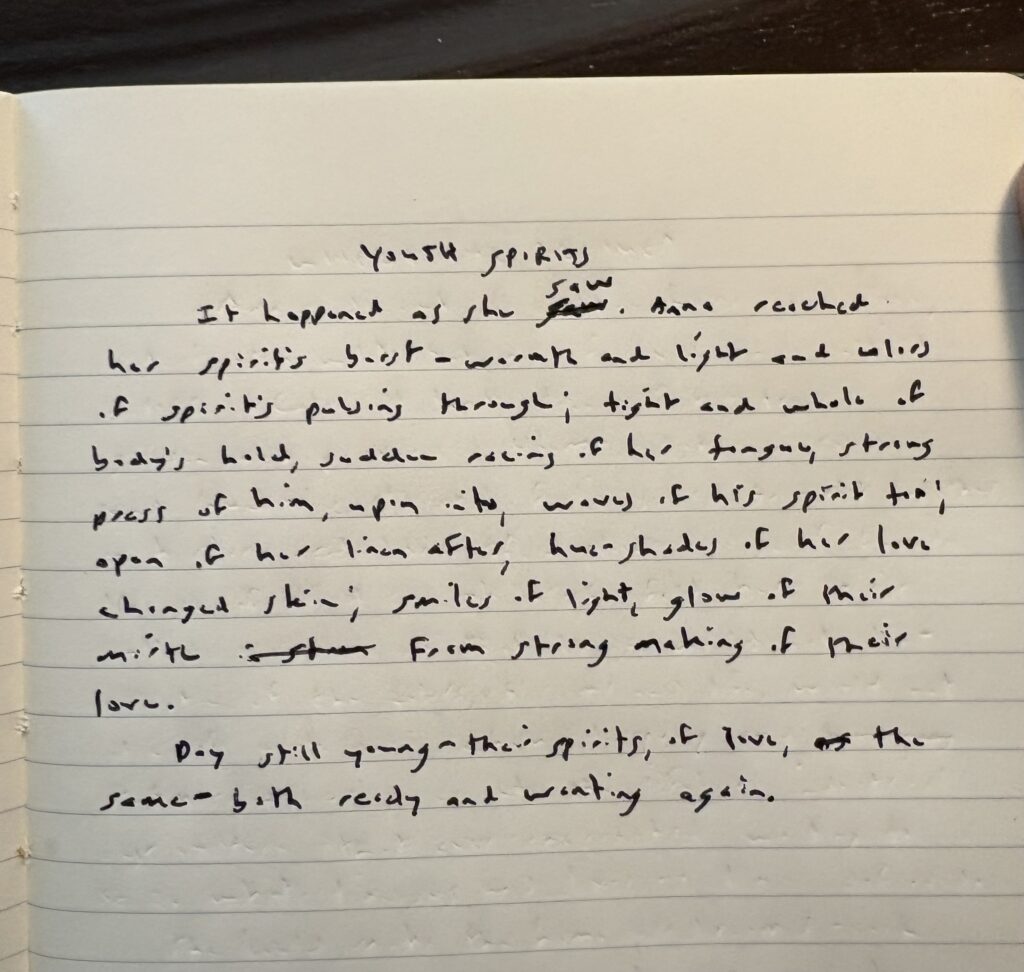 YOUTH SPIRITS
saw
It happened as she saw. Anna reached
her spirit's burst - warmth and light and colors
of spirit's pulsing through; tight and whole of
body's hold, sudden racing of her tongue, strong
press of him, upon into, waves of his spirit too;
open of her linen after, hue-shades of her love
changed skin; smiles of light, glow of their
mirth from strong making of their
love.
Day still young - their spirits, of love, as the
same - both ready and wanting again.